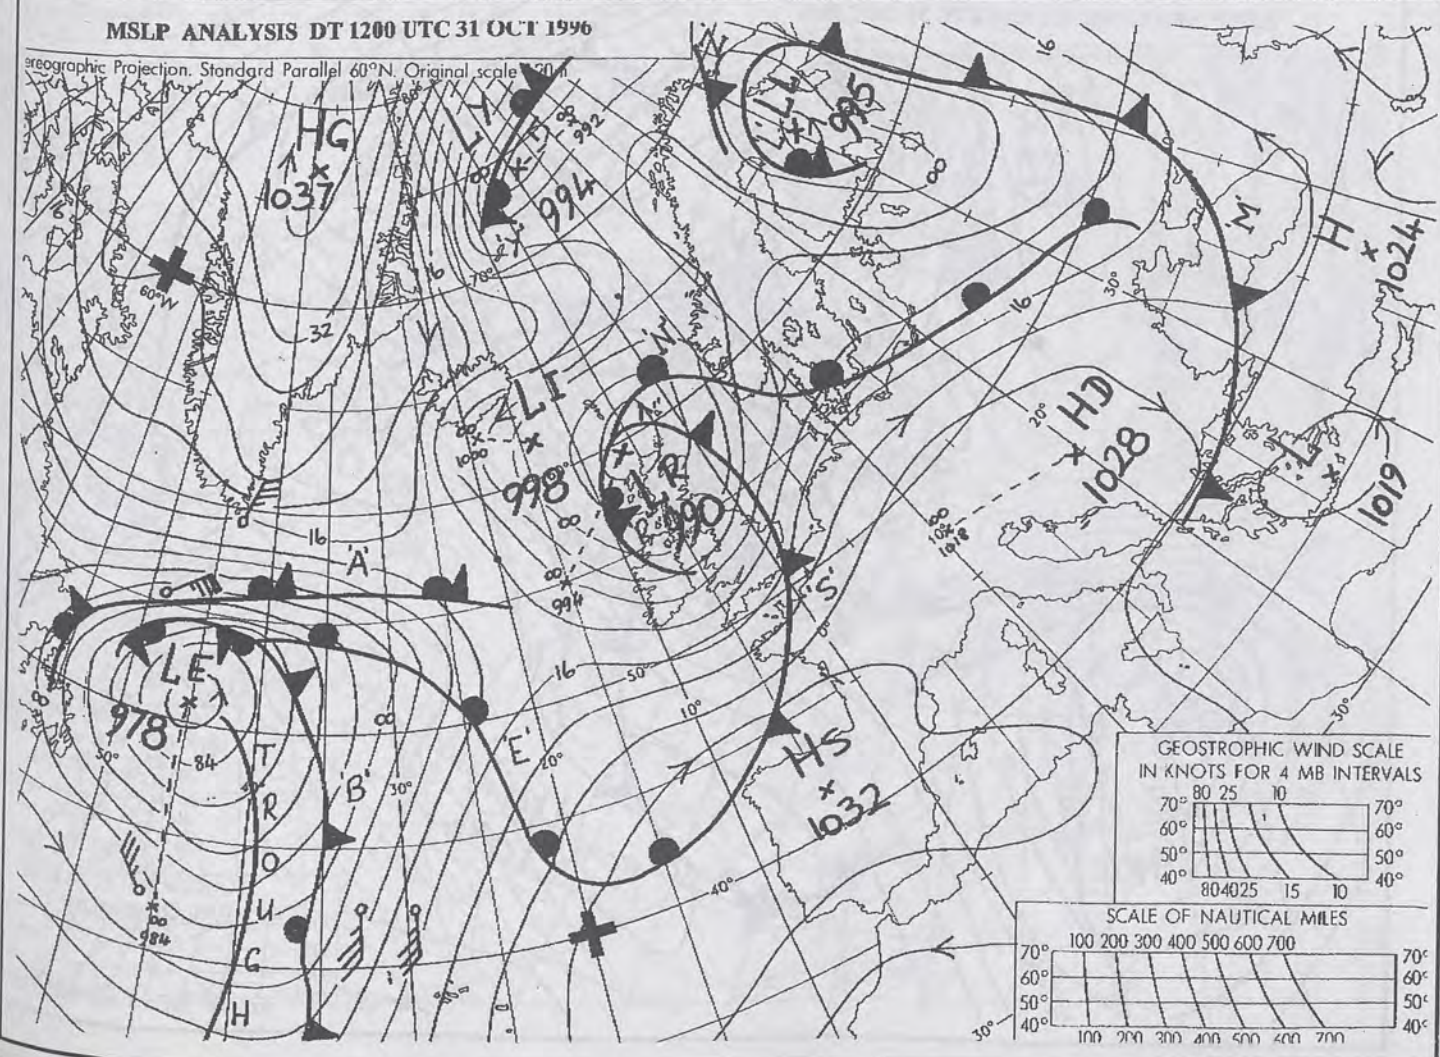 MSLP ANALYSIS DT 1200 UTC 31 OCT 1996
ereographic Projection. Standard Parallel 60°N. Original scale
HG
1037
LY
992
994
'Y'
LL
975
16
00
'M'
H
1024
70°
16
60°W
32
30°
'N'
LI
1000
998
00
LR
'R'
990
16
20°
HD
1028
00
1018
L
1019
16
'A'
00
994
'S'
0°
LE
978
84
TROUGH
'B'
00
'E'
16
50°
10°
20°
30°
40°
50°
HS
1032
40°
30°
30°
00
984
GEOSTROPHIC WIND SCALE
IN KNOTS FOR 4 MB INTERVALS
80 25 10
70° 70°
60° 60°
50° 50°
40° 40°
80 40 25 15 10
SCALE OF NAUTICAL MILES
100 200 300 400 500 600 700
70° 70°
60° 60°
50° 50°
40° 40°
100 200 300 400 500 600 700